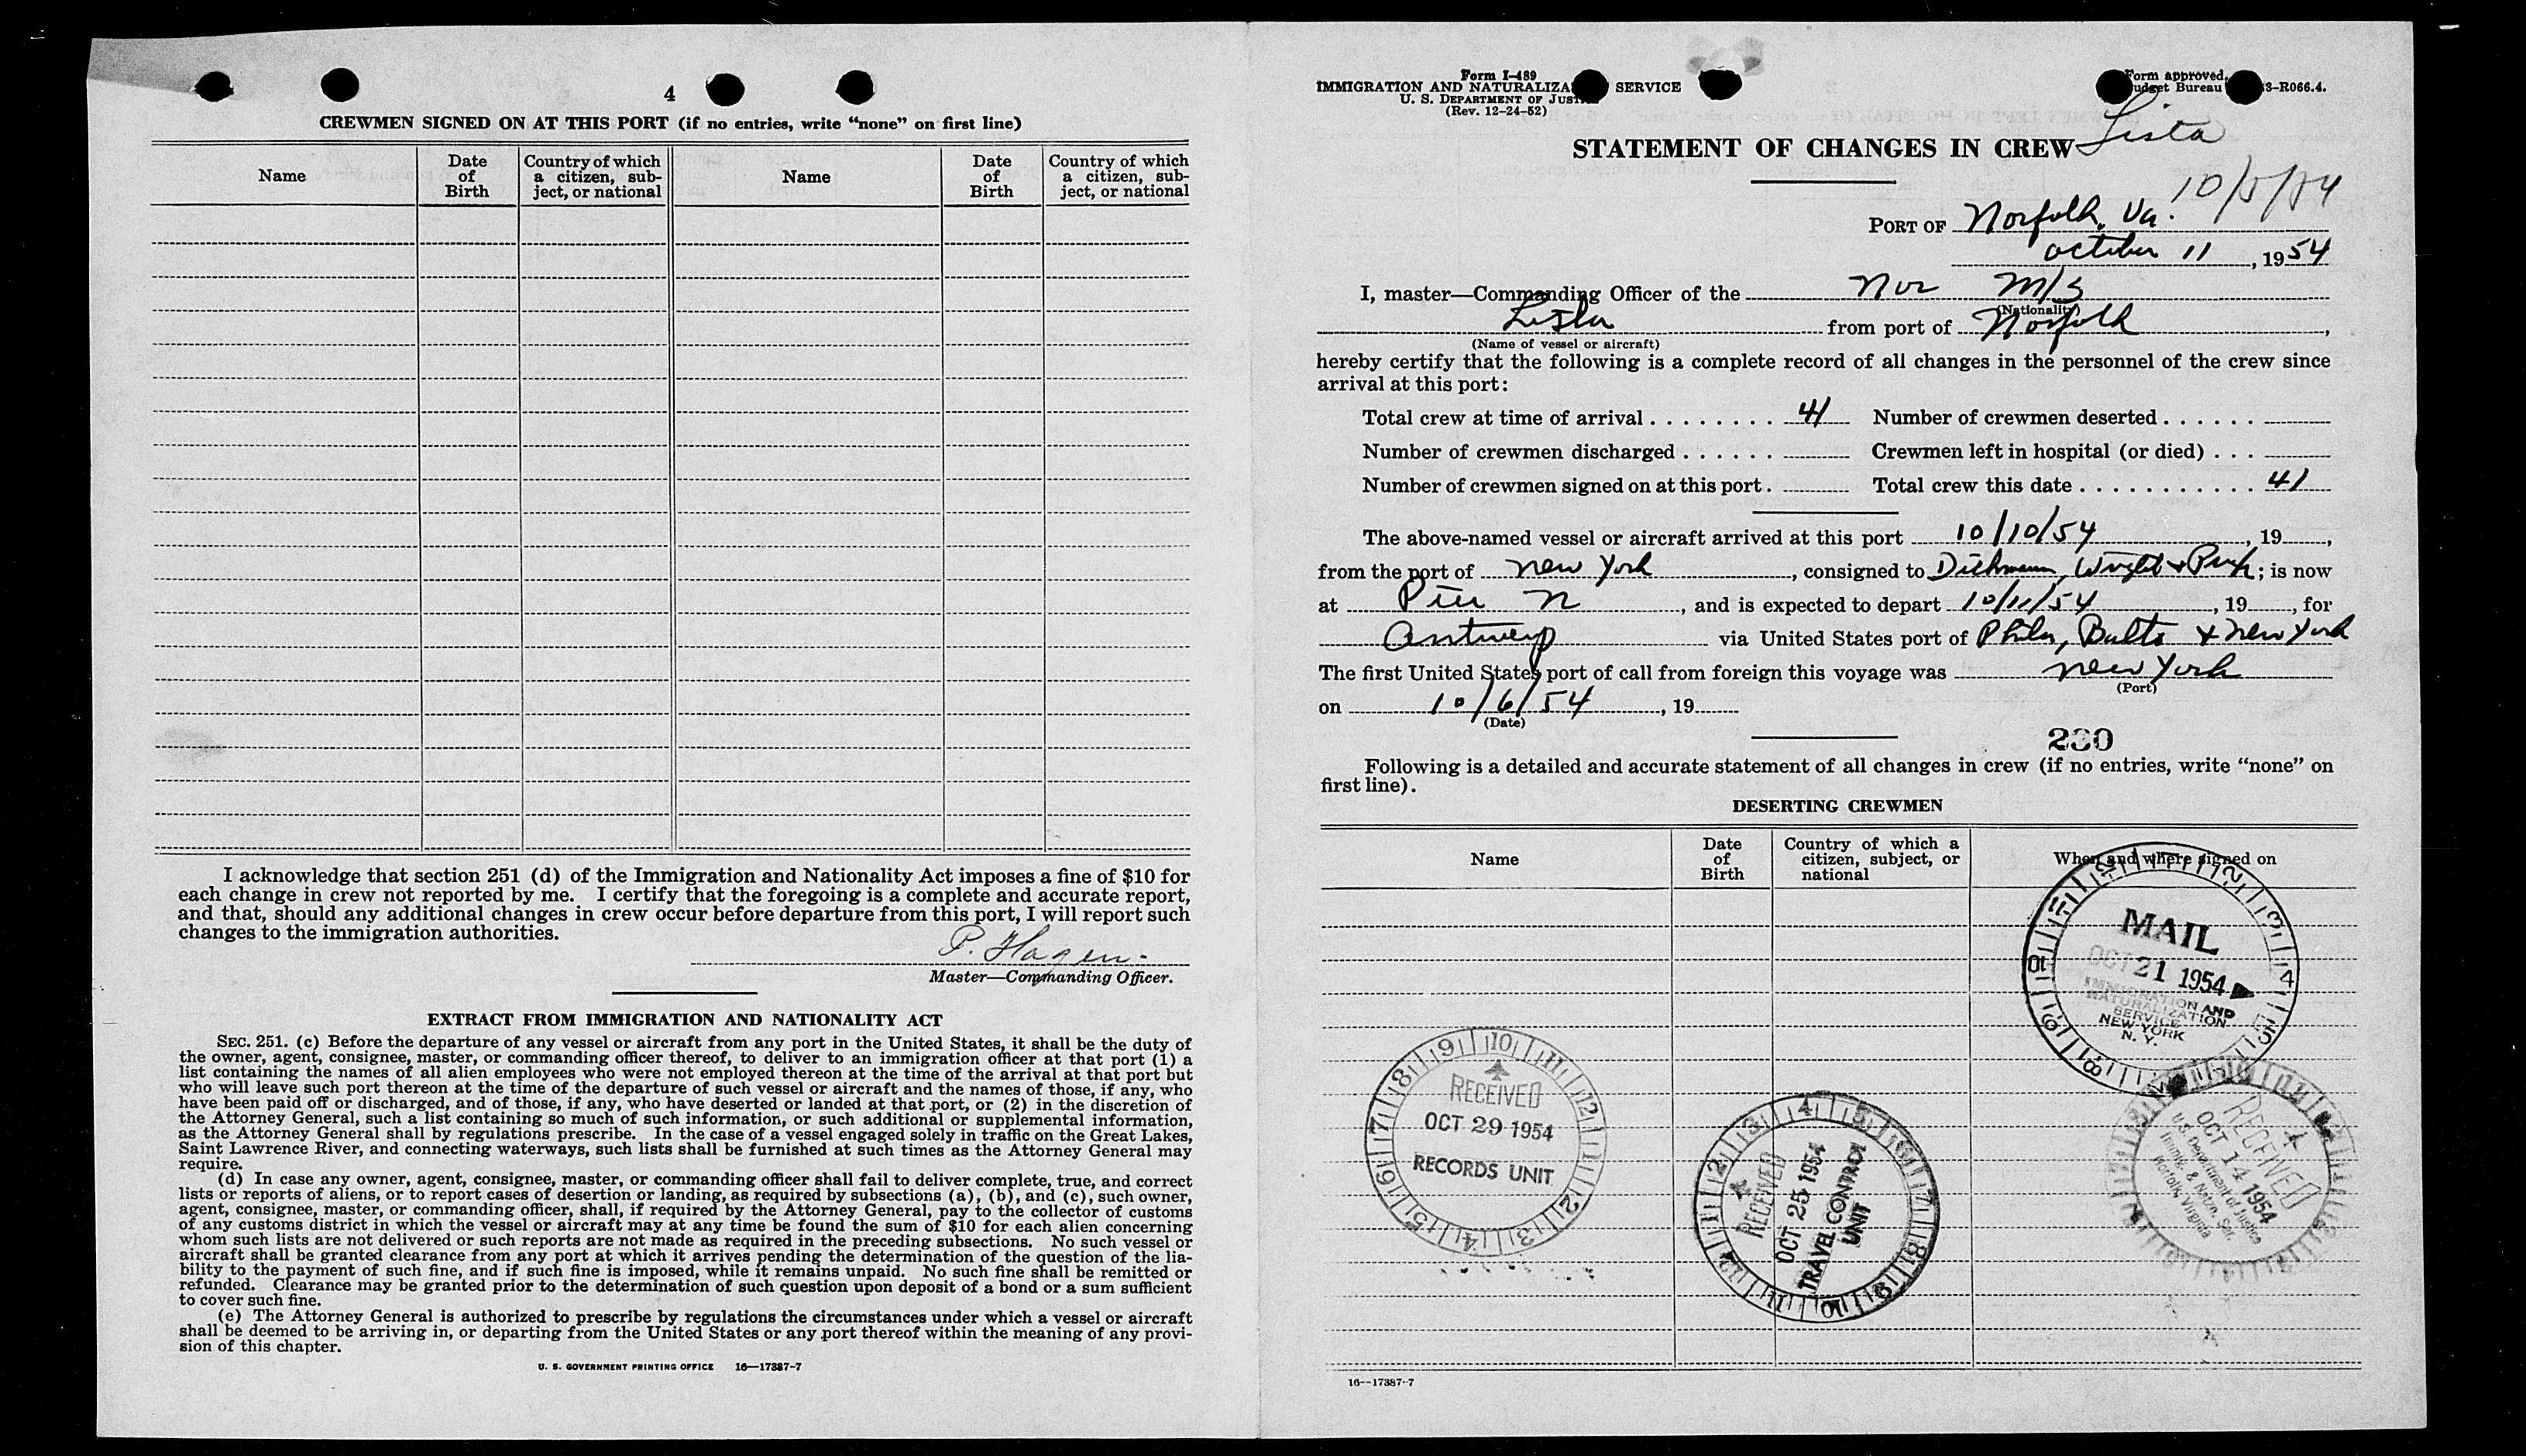 4
CREWMEN SIGNED ON AT THIS PORT (if no entries, write “none” on first line)
Name
Date of Birth
Country of which a citizen, sub-ject, or national
Name
Date of Birth
Country of which a citizen, sub-ject, or national
I acknowledge that section 251 (d) of the Immigration and Nationality Act imposes a fine of $10 for
each change in crew not reported by me. I certify that the foregoing is a complete and accurate report,
and that, should any additional changes in crew occur before departure from this port, I will report such
changes to the immigration authorities.
P. Hagen
Master—Commanding Officer.
EXTRACT FROM IMMIGRATION AND NATIONALITY ACT
SEC. 251. (c) Before the departure of any vessel or aircraft from any port in the United States, it shall be the duty of
the owner, agent, consignee, master, or commanding officer thereof, to deliver to an immigration officer at that port (1) a
list containing the names of all alien employees who were not employed thereon at the time of the arrival at that port but
who will leave such port thereon at the time of the departure of such vessel or aircraft and the names of those, if any, who
have been paid off or discharged, and of those, if any, who have deserted or landed at that port, or (2) in the discretion of
the Attorney General, such a list containing so much of such information, or such additional or supplemental information,
as the Attorney General shall by regulations prescribe. In the case of a vessel engaged solely in traffic on the Great Lakes,
Saint Lawrence River, and connecting waterways, such lists shall be furnished at such times as the Attorney General may
require.
(d) In case any owner, agent, consignee, master, or commanding officer shall fail to deliver complete, true, and correct
lists or reports of aliens, or to report cases of desertion or landing, as required by subsections (a), (b), and (c), such owner,
agent, consignee, master, or commanding officer, shall, if required by the Attorney General, pay to the collector of customs
of any customs district in which the vessel or aircraft may at any time be found the sum of $10 for each alien concerning
whom such lists are not delivered or such reports are not made as required in the preceding subsections. No such vessel or
aircraft shall be granted clearance from any port at which it arrives pending the determination of the question of the lia-
bility to the payment of such fine, and if such fine is imposed, while it remains unpaid. No such fine shall be remitted or
refunded. Clearance may be granted prior to the determination of such question upon deposit of a bond or a sum sufficient
to cover such fine.
(e) The Attorney General is authorized to prescribe by regulations the circumstances under which a vessel or aircraft
shall be deemed to be arriving in, or departing from the United States or any port thereof within the meaning of any provi-
sion of this chapter.
U. S. GOVERNMENT PRINTING OFFICE 16—17387-7
Form I-489
IMMIGRATION AND NATURALIZA SERVICE
U. S. DEPARTMENT OF JUST
(Rev. 12-24-52)
Form approved.
Budget Bureau 3-R066.4.
Lista
STATEMENT OF CHANGES IN CREW
10/5/54
PORT OF Norfolk, Va.
October 11, 1954
I, master—Commanding Officer of the Nor M/S
(Nationality)
Lista from port of Norfolk,
(Name of vessel or aircraft)
hereby certify that the following is a complete record of all changes in the personnel of the crew since
arrival at this port:
Total crew at time of arrival . . . . . . . . 41 Number of crewmen deserted . . . . . .
Number of crewmen discharged . . . . . . Crewmen left in hospital (or died) . . .
Number of crewmen signed on at this port . Total crew this date . . . . . . . . . . . 41
The above-named vessel or aircraft arrived at this port 10/10/54, 19,
from the port of New York, consigned to Dichmann, Wright & Pugh; is now
at Pier N, and is expected to depart 10/11/54, 19, for
Antwerp via United States port of Phila, Balto & New York
The first United States port of call from foreign this voyage was New York
(Port)
on 10/6/54, 19
(Date)
230
Following is a detailed and accurate statement of all changes in crew (if no entries, write “none” on
first line).
DESERTING CREWMEN
Name
Date of Birth
Country of which a citizen, subject, or national
When and where signed on
MAIL
OCT 21 1954
IMMIGRATION AND
NATURALIZATION
SERVICE
NEW YORK
N. Y.
RECEIVED
OCT 29 1954
RECORDS UNIT
RECEIVED
OCT 25 1954
TRAVEL CONTROL
UNIT
RECEIVED
OCT 14 1954
U.S. Department of Justice
Immig. & Natzn. Ser.
Norfolk, Virginia
16--17387-7